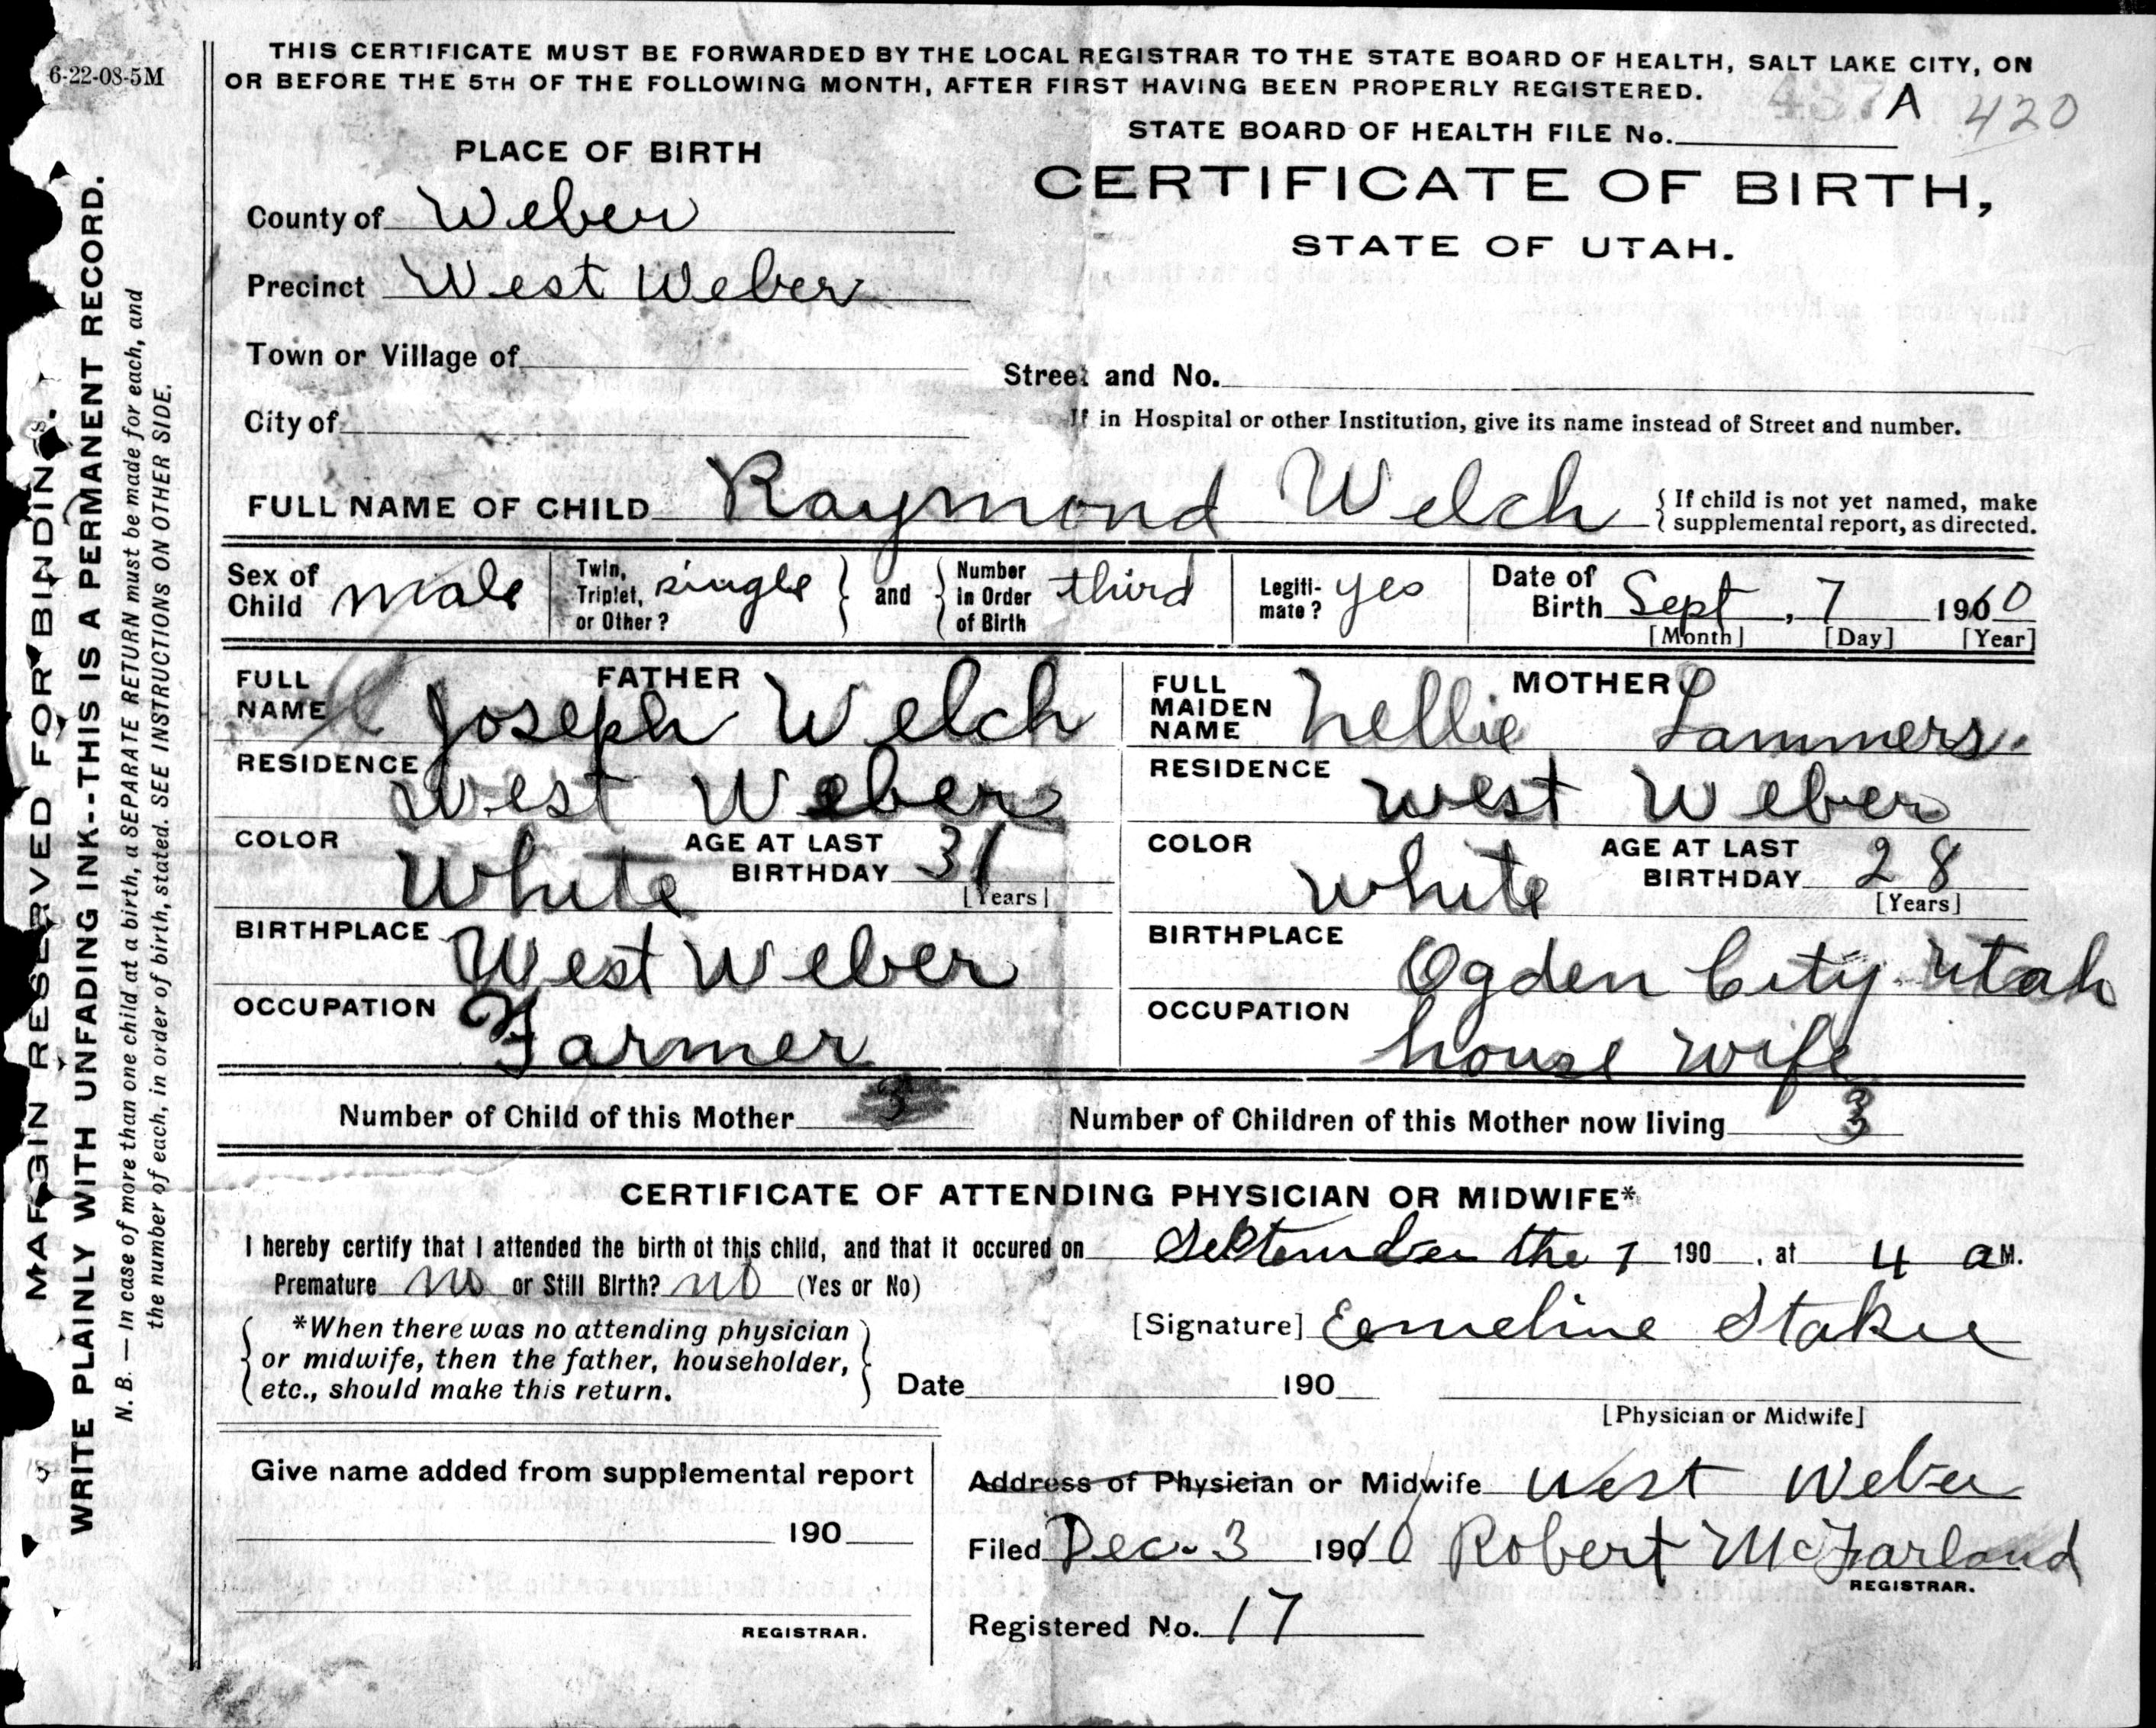 6-22-08-5M
THIS CERTIFICATE MUST BE FORWARDED BY THE LOCAL REGISTRAR TO THE STATE BOARD OF HEALTH, SALT LAKE CITY, ON
OR BEFORE THE 5TH OF THE FOLLOWING MONTH, AFTER FIRST HAVING BEEN PROPERLY REGISTERED.
437 A 420
STATE BOARD OF HEALTH FILE No.
PLACE OF BIRTH
CERTIFICATE OF BIRTH,
STATE OF UTAH.
County of Weber
Precinct West Weber
Town or Village of
Street and No.
City of
If in Hospital or other Institution, give its name instead of Street and number.
FULL NAME OF CHILD Raymond Welch
{ If child is not yet named, make
supplemental report, as directed.
Sex of Child male
Twin, Triplet, or Other? single } and { Number in Order of Birth third
Legiti-mate? yes
Date of Birth Sept, 7 1910
[Month] [Day] [Year]
FATHER
FULL NAME Joseph Welch
RESIDENCE West Weber
COLOR White
AGE AT LAST BIRTHDAY 31
[Years]
BIRTHPLACE West Weber
OCCUPATION Farmer
MOTHER
FULL MAIDEN NAME Nellie Lammers.
RESIDENCE west Weber
COLOR white
AGE AT LAST BIRTHDAY 28
[Years]
BIRTHPLACE Ogden City Utah
OCCUPATION house wife
Number of Child of this Mother 3
Number of Children of this Mother now living 3
CERTIFICATE OF ATTENDING PHYSICIAN OR MIDWIFE*
I hereby certify that I attended the birth of this child, and that it occured on September the 7 190 , at 4 a M.
Premature no or Still Birth? no (Yes or No)
{ *When there was no attending physician
or midwife, then the father, householder,
etc., should make this return. }
[Signature] Emeline
Date 190
[Physician or Midwife]
Give name added from supplemental report
190
REGISTRAR.
Address of Physician or Midwife West Weber
Filed Dec. 3 1910 Robert McFarland
REGISTRAR.
Registered No. 17
MARGIN RESERVED FOR BINDING.
WRITE PLAINLY WITH UNFADING INK--THIS IS A PERMANENT RECORD.
N. B. — In case of more than one child at a birth, a SEPARATE RETURN must be made for each, and
the number of each, in order of birth, stated. SEE INSTRUCTIONS ON OTHER SIDE.